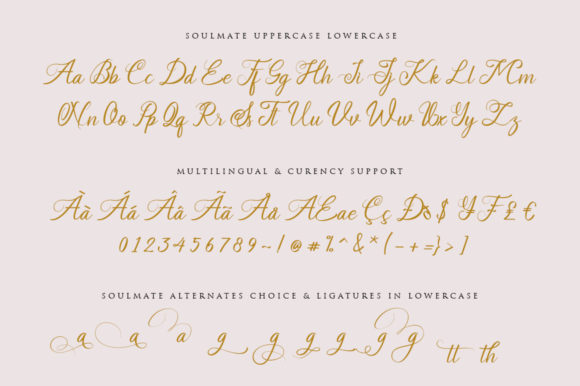 SOULMATE UPPERCASE LOWERCASE
Aa Bb Cc Dd Ee Ff Gg Hh Ii Jj Kk Ll Mm
Nn Oo Pp Qq Rr Ss Tt Uu Vv Ww Xx Yy Zz
MULTILINGUAL & CURENCY SUPPORT
Àà Áá Ââ Ãã Åå AEae Çç Ðð $ ¥ F £ €
0123456789~/|@#%^&*(-+=}>]
SOULMATE ALTERNATES CHOICE & LIGATURES IN LOWERCASE
a a a g g g g g g tt th